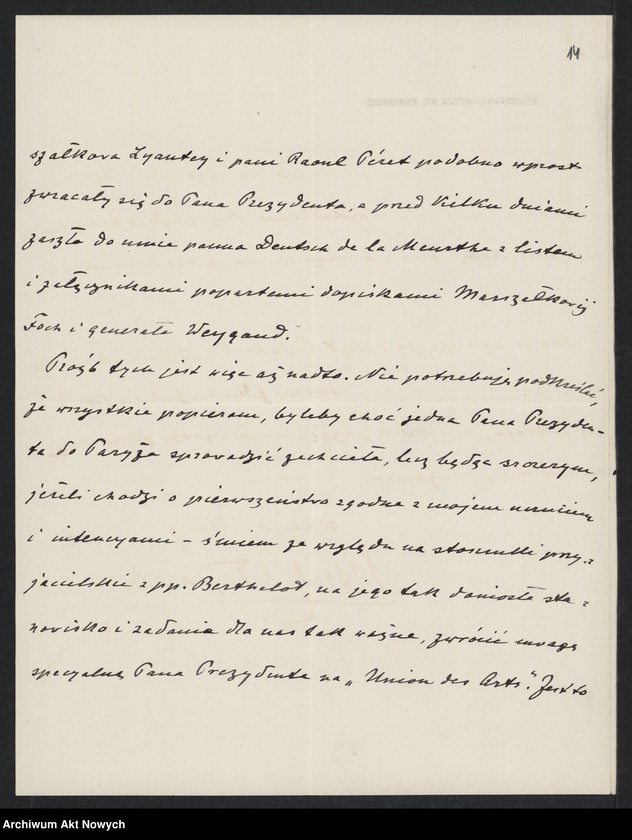 14
szałkowa Lyautey i pani Raoul Péret podobno wprost
zwracały się do Pana Prezydenta, a przed kilku dniami
zaszła do mnie panna Deutsch de la Meurthe z listem
i załącznikami popartemi dopiskami Marszałkowej
Foch i generała Weygand.
Próśb tych jest więc aż nadto. Nie potrzebuję podkreślić,
że wszystkie popieram, byleby choć jedna Pana Prezyden-
ta do Paryża sprowadzić zechciała, lecz będąc szczerym,
jeżeli chodzi o pierwszeństwo zgodne z mojem sumieniem
i intencyami – śmiem ze względu na stosunki przy-
jacielskie z pp. Berthelot, na jego tak doniosłe sta-
nowisko i zadania dla nas tak ważne, zwrócić uwagę
specyalną Pana Prezydenta na „Union des Arts". Jest to
Archiwum Akt Nowych